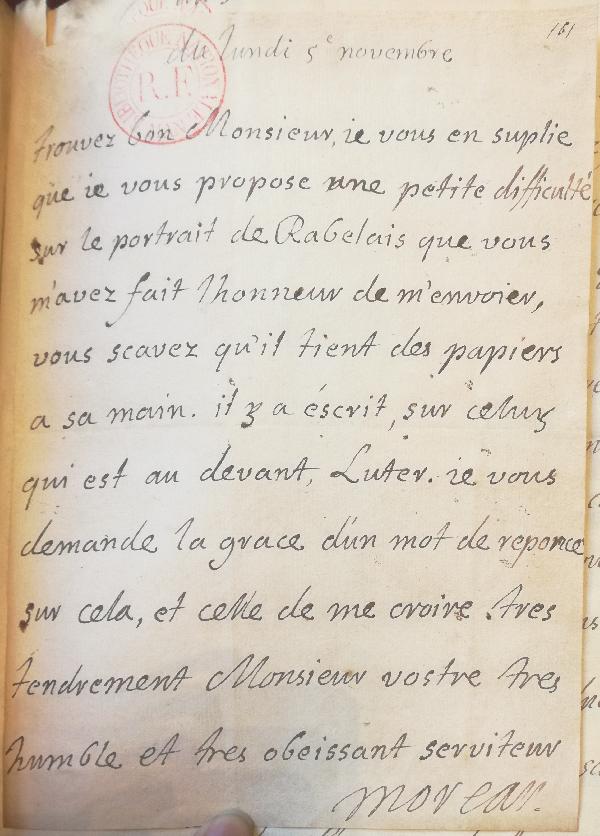 161
du lundi 5e novembre
BIBLIOTHEQUE NATIONALE
R.F
trouvez bon Monsieur, ie vous en suplie
que ie vous propose une petite difficulté
sur le portrait de Rabelais que vous
m'avez fait lhonneur de m'envoier,
vous scavez qu'il tient des papiers
a sa main. il y a éscrit, sur celuy
qui est au devant, Luter. ie vous
demande la grace d'un mot de reponce
sur cela, et celle de me croire tres
tendrement Monsieur vostre tres
humble et tres obeissant serviteur
moreau.